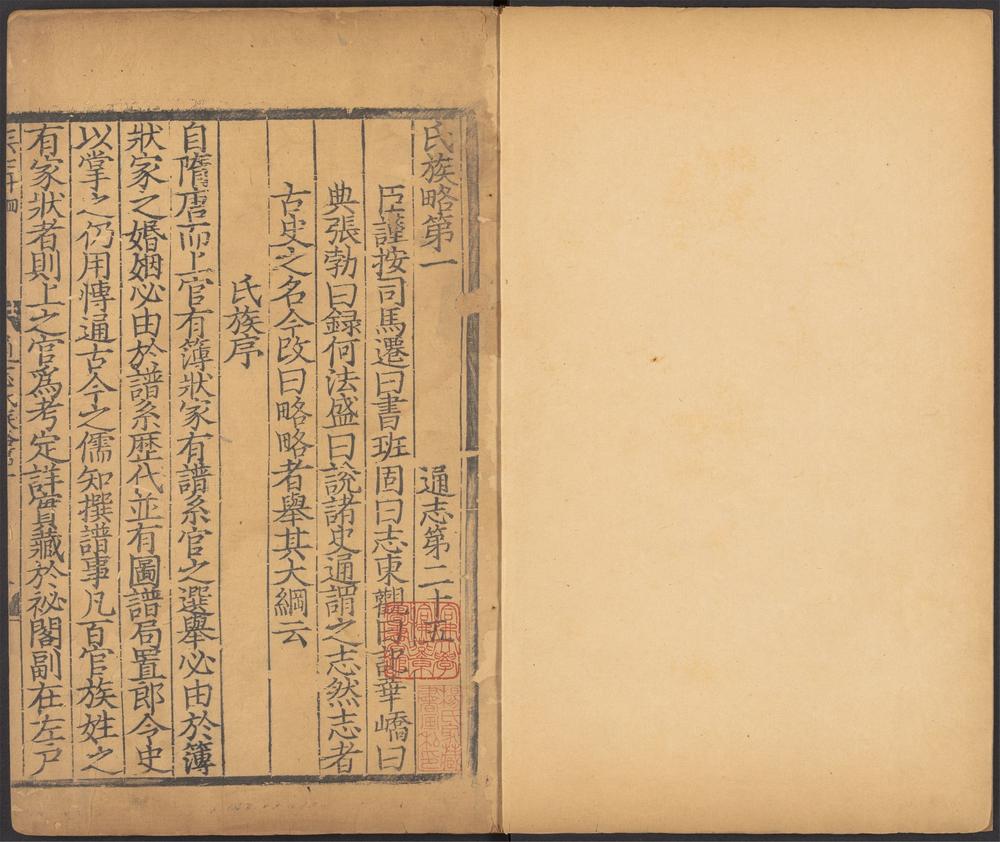 氏族略第一 通志第二十五
臣謹按司馬遷曰書班固曰志東觀曰記華嶠曰
典張勃曰録何法盛曰說諸史通謂之志然志者
古史之名今改曰略略者舉其大綱云
氏族序
自隋唐而上官有簿狀家有譜系官之選舉必由於簿
狀家之婚姻必由於譜系歷代並有圖譜局置郎令史
以掌之仍用博通古今之儒知撰譜事凡百官族姓之
有家狀者則上之官爲考定詳實藏於祕閣副在左戶